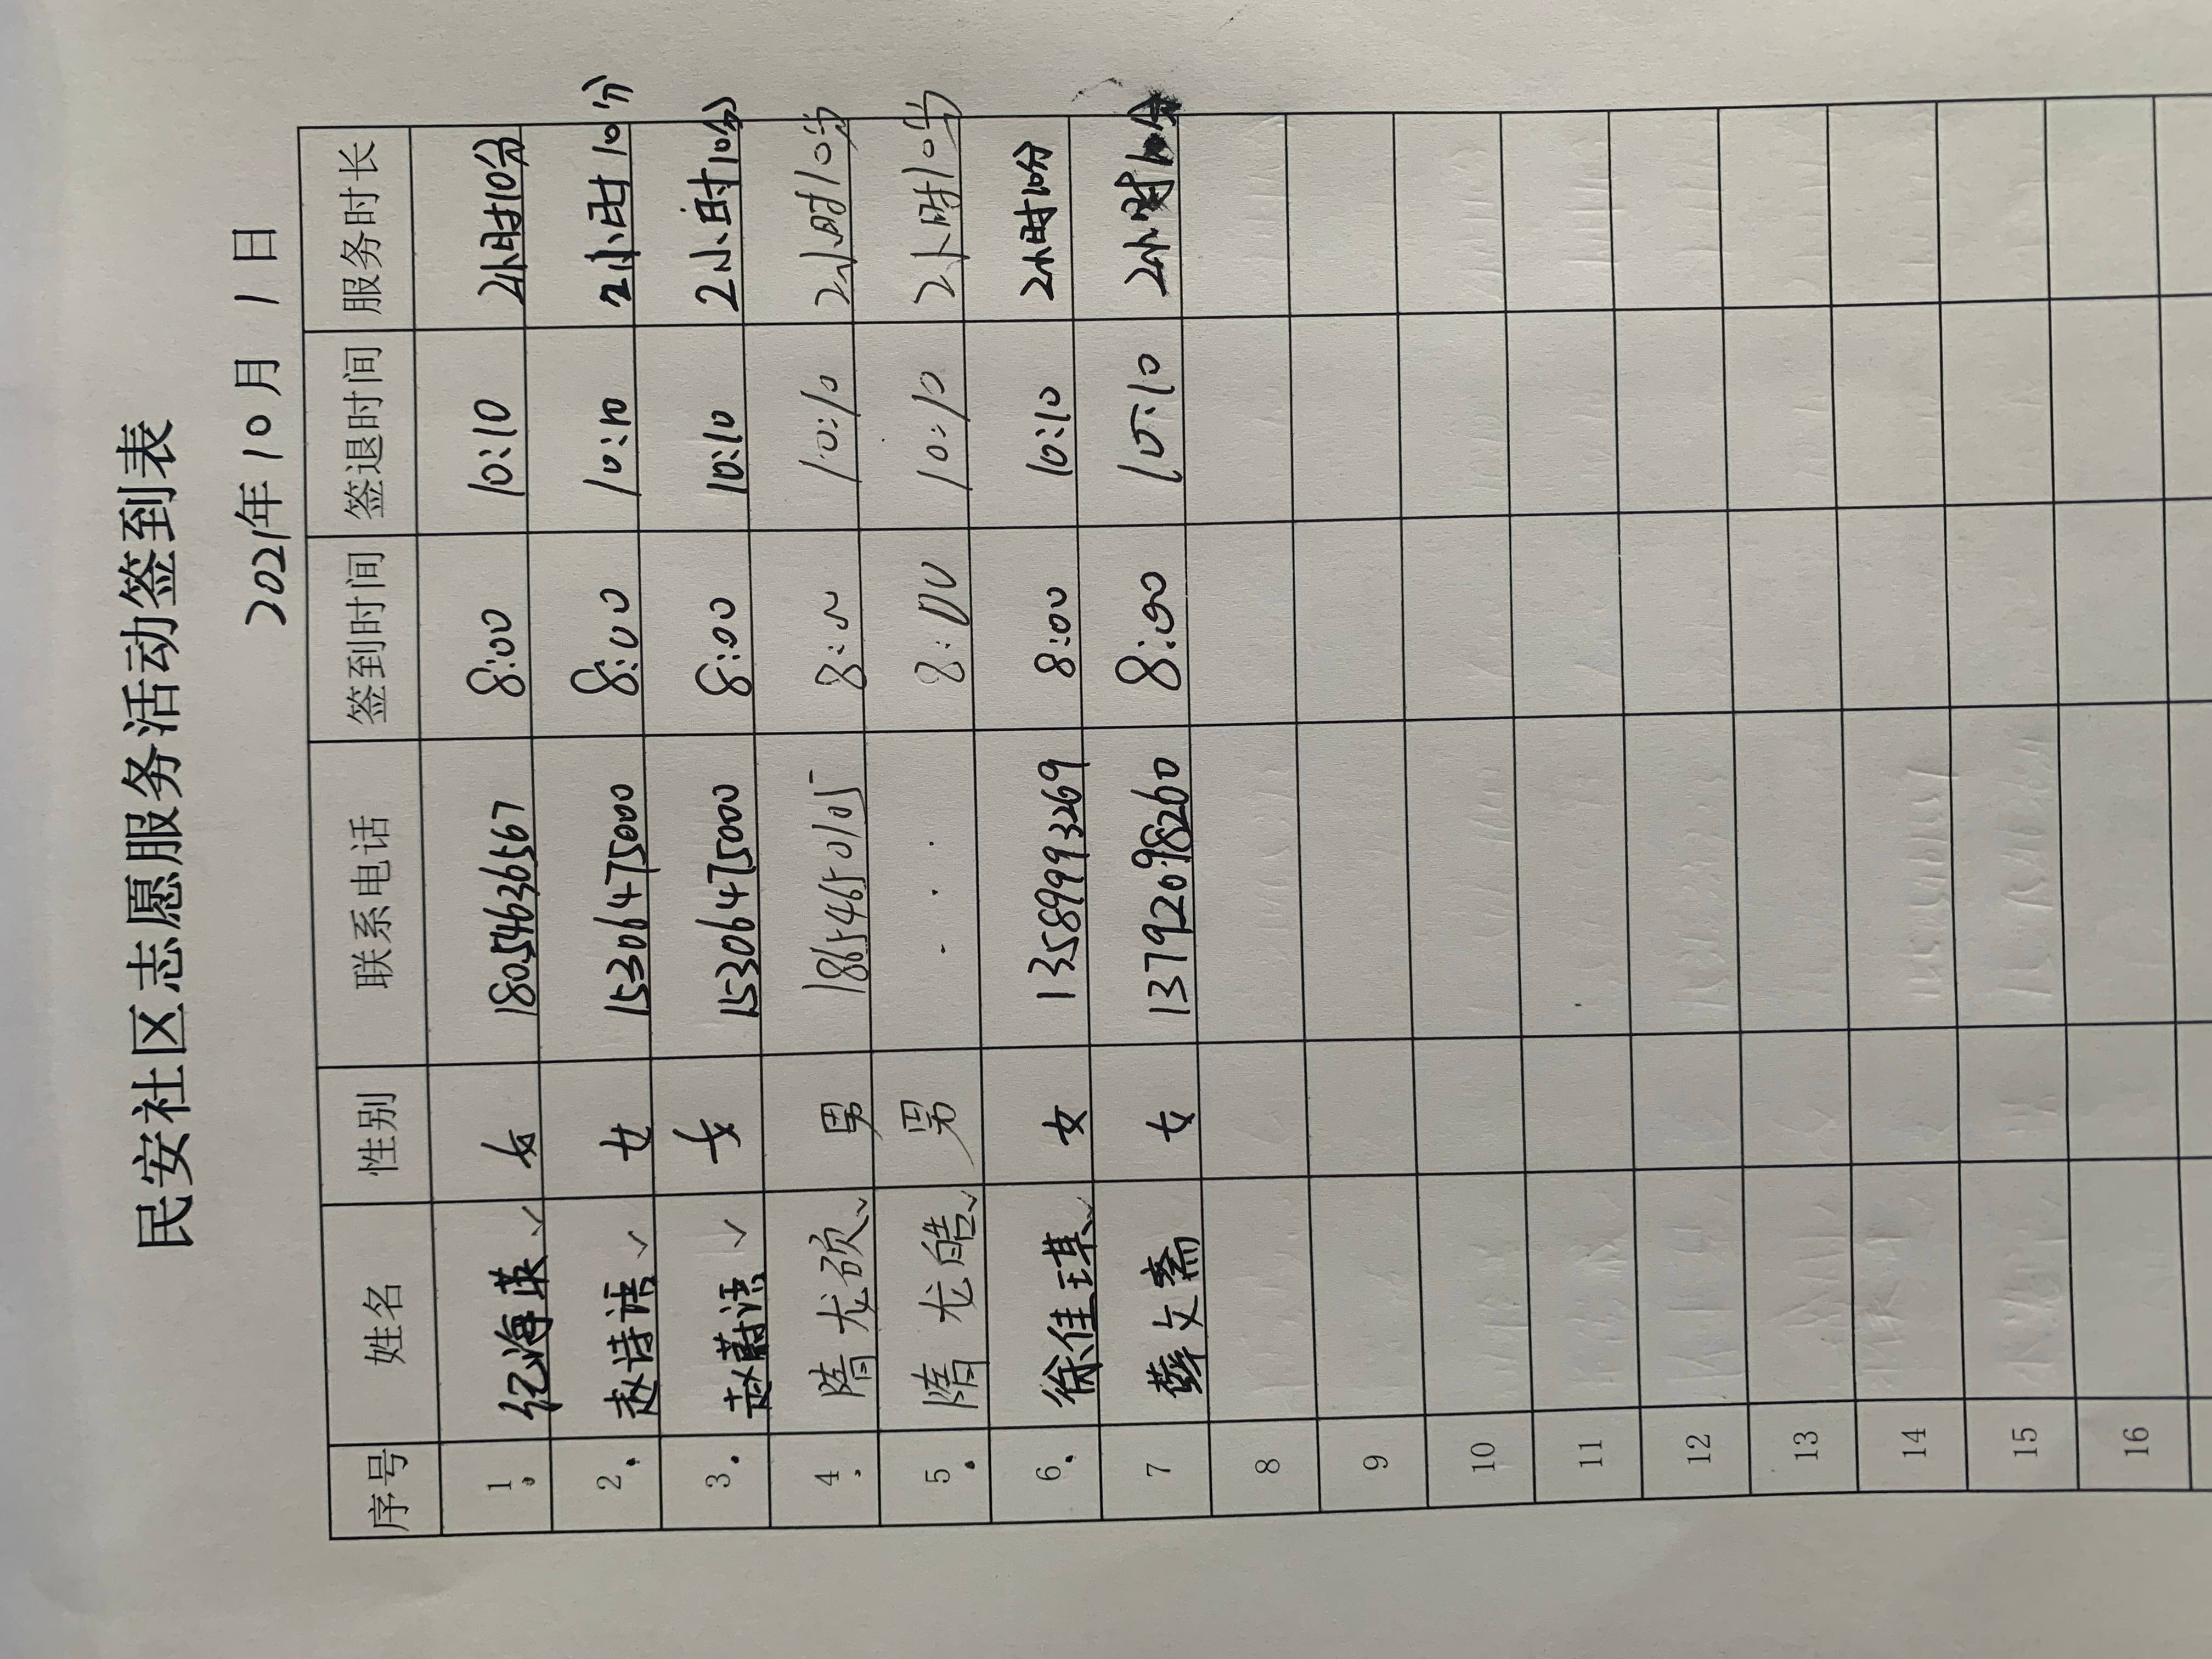 民安社区志愿服务活动签到表
2021年10月1日
序号 姓名 性别 联系电话 签到时间 签退时间 服务时长
1. 纪海英 ✓ 女 18054636567 8:00 10:10 2小时10分
2. 赵诗语 ✓ 女 15306475000 8:00 10:10 2小时10分
3. 赵蔚语 ✓ 女 15306475000 8:00 10:10 2小时10分
4. 隋龙硕 ✓ 男 18654650105 8:00 10:10 2小时10分
5. 隋龙皓 ✓ 男 . . . 8:00 10:10 2小时10分
6. 徐佳琪 ✓ 女 13589993269 8:00 10:10 2小时10分
7 薛文斋 女 13792098260 8:00 10:10 2小时10分
8
9
10
11
12
13
14
15
16